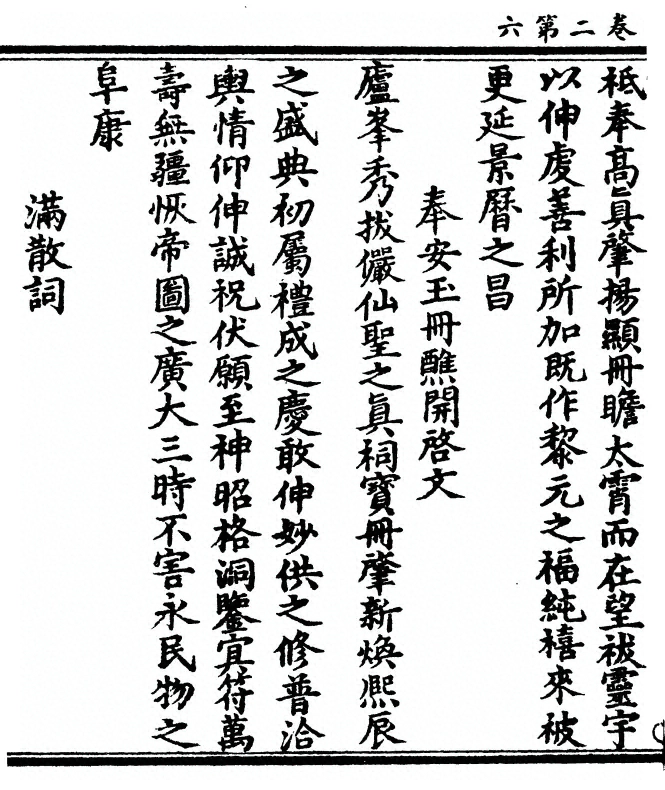 卷二第六
祗奉高眞肇揚顯冊瞻太霄而在望祓靈宇
以伸虔善利所加既作黎元之福純禧來被
更延景曆之昌
奉安玉冊醮開啓文
廬峯秀拔儼仙聖之眞祠寶冊肇新煥熙辰
之盛典初屬禮成之慶敢伸妙供之修普洽
輿情仰伸誠祝伏願至神昭格洞鑒宜符萬
壽無疆恢帝圖之廣大三時不害永民物之
阜康
滿散詞